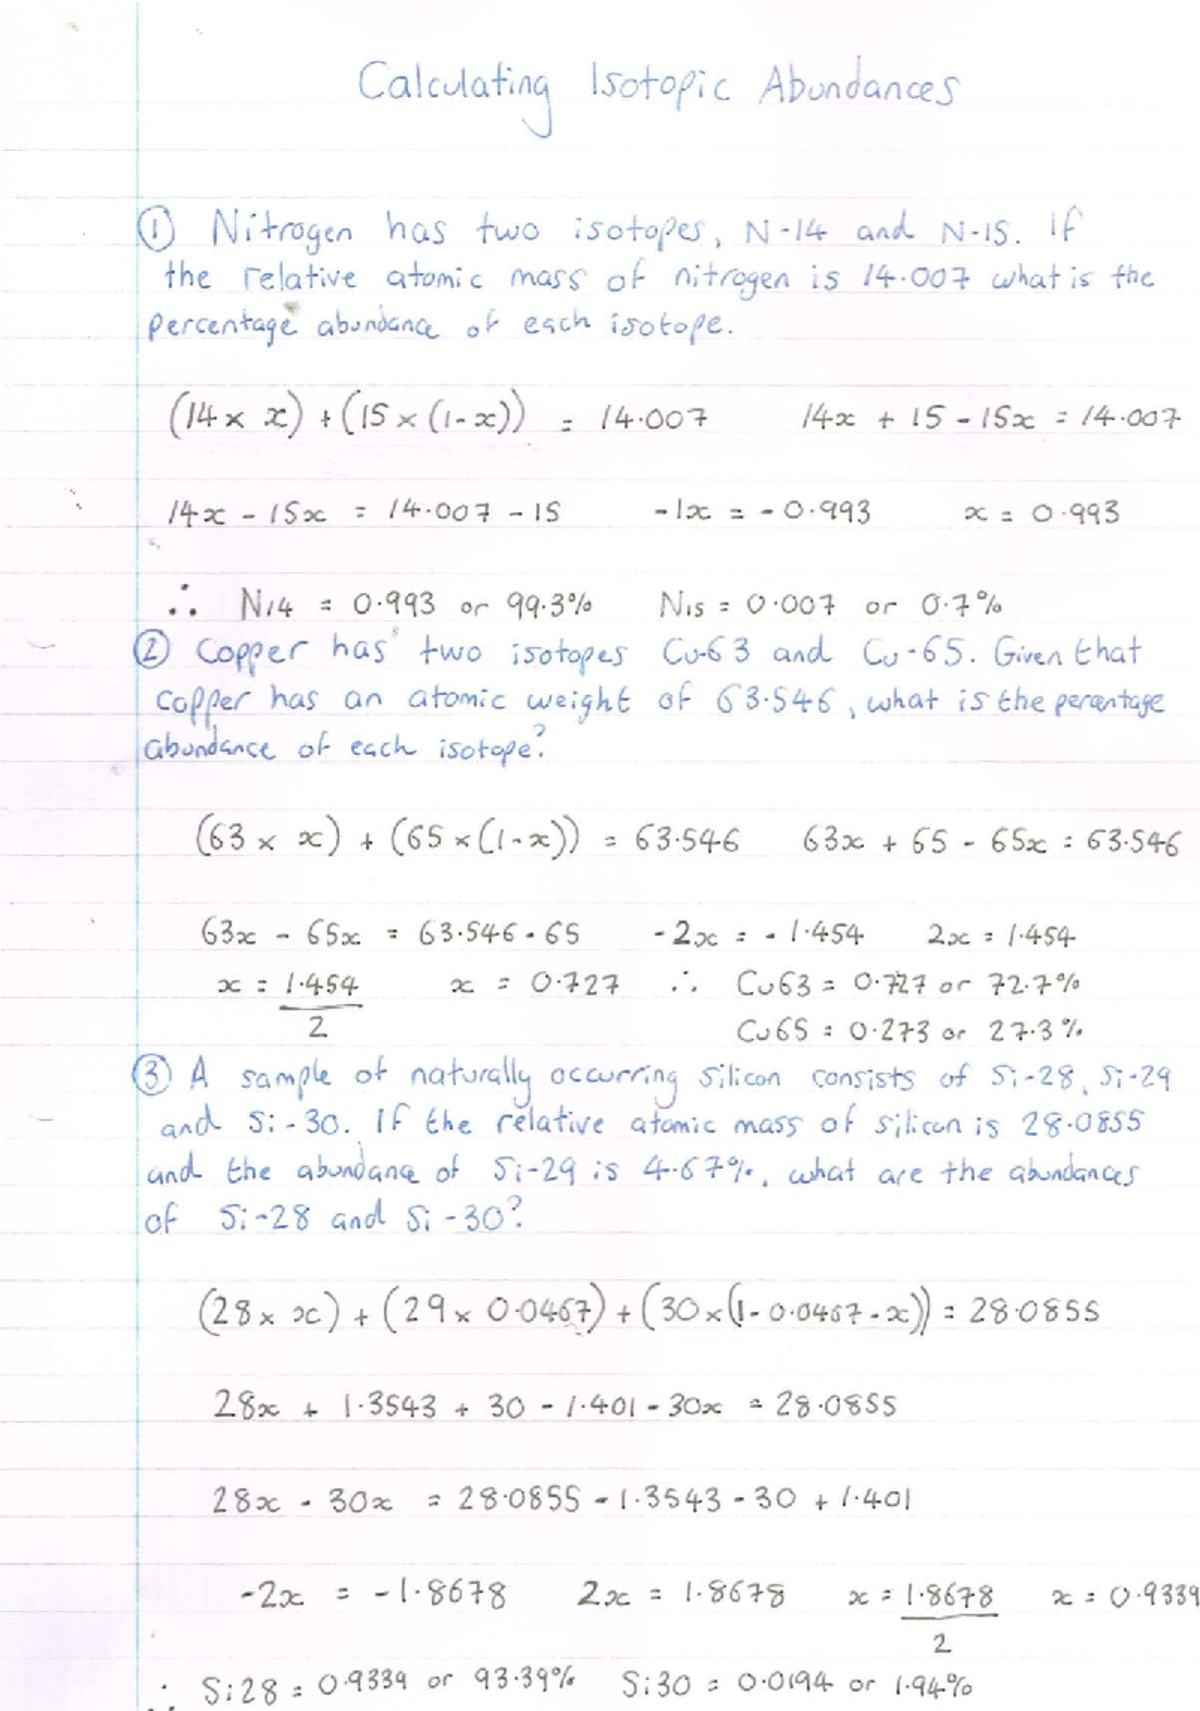 Calculating Isotopic Abundances
① Nitrogen has two isotopes, N-14 and N-15. If
the relative atomic mass of nitrogen is 14.007 what is the
percentage abundance of each isotope.
(14 × x) + (15 × (1-x)) = 14.007 14x + 15 - 15x = 14.007
14x - 15x = 14.007 - 15 -1x = -0.993 x = 0.993
∴ N14 = 0.993 or 99.3% N15 = 0.007 or 0.7%
② Copper has two isotopes Cu-63 and Cu-65. Given that
copper has an atomic weight of 63.546, what is the percentage
abundance of each isotope?
(63 × x) + (65 × (1-x)) = 63.546 63x + 65 - 65x = 63.546
63x - 65x = 63.546 - 65 -2x = -1.454 2x = 1.454
x = 1.454/2 x = 0.727 ∴ Cu63 = 0.727 or 72.7%
Cu65 = 0.273 or 27.3%
③ A sample of naturally occurring silicon consists of Si-28, Si-29
and Si-30. If the relative atomic mass of silicon is 28.0855
and the abundance of Si-29 is 4.67%, what are the abundances
of Si-28 and Si-30?
(28 × x) + (29 × 0.0467) + (30 × (1-0.0467-x)) = 28.0855
28x + 1.3543 + 30 - 1.401 - 30x = 28.0855
28x - 30x = 28.0855 - 1.3543 - 30 + 1.401
-2x = -1.8678 2x = 1.8678 x = 1.8678/2 x = 0.9339
∴ Si28 = 0.9339 or 93.39% Si30 = 0.0194 or 1.94%